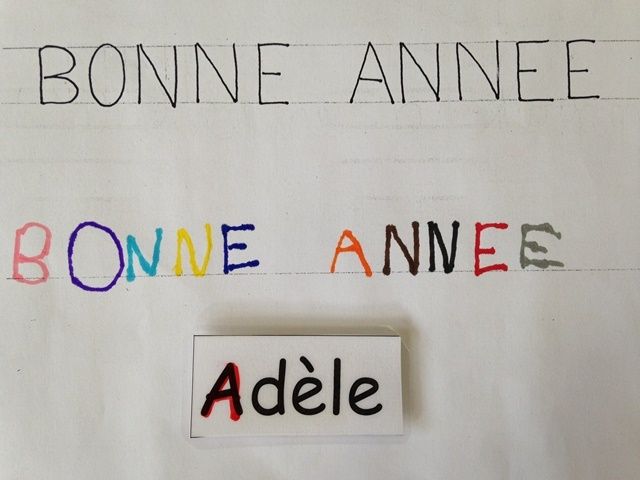 BONNE ANNEE
BONNE ANNEE
Adèle